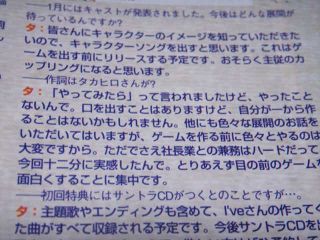 1月にはキャストが発表されました。今後はどんな展開が
待っているんですか？
タ：皆さんにキャラクターのイメージを知っていただきた
いので、キャラクターソングを出すと思います。これはゲ
ームを出す前にリリースする予定です。おそらく主従のカ
ップリングになると思います。
──作詞はタカヒロさんが？
タ：「やってみたら」って言われましたけど、やったこと
ないんで。口を出すことはありますけど、自分が一から作
ることはないかもしれません。他にも色々な展開のお話を
いただいてはいますが、ゲームを作る前に色々とやるのは
大変ですから。ただでさえ社長業との兼務はハードだって
今回十二分に実感したんで。とりあえず目の前のゲームを
面白くすることに集中です。
──初回特典にはサントラCDがつくとのことですが…。
タ：主題歌やエンディングも含めて、I'veさんの作ってく
た曲がすべて収録される予定です。今後サントラCDを出